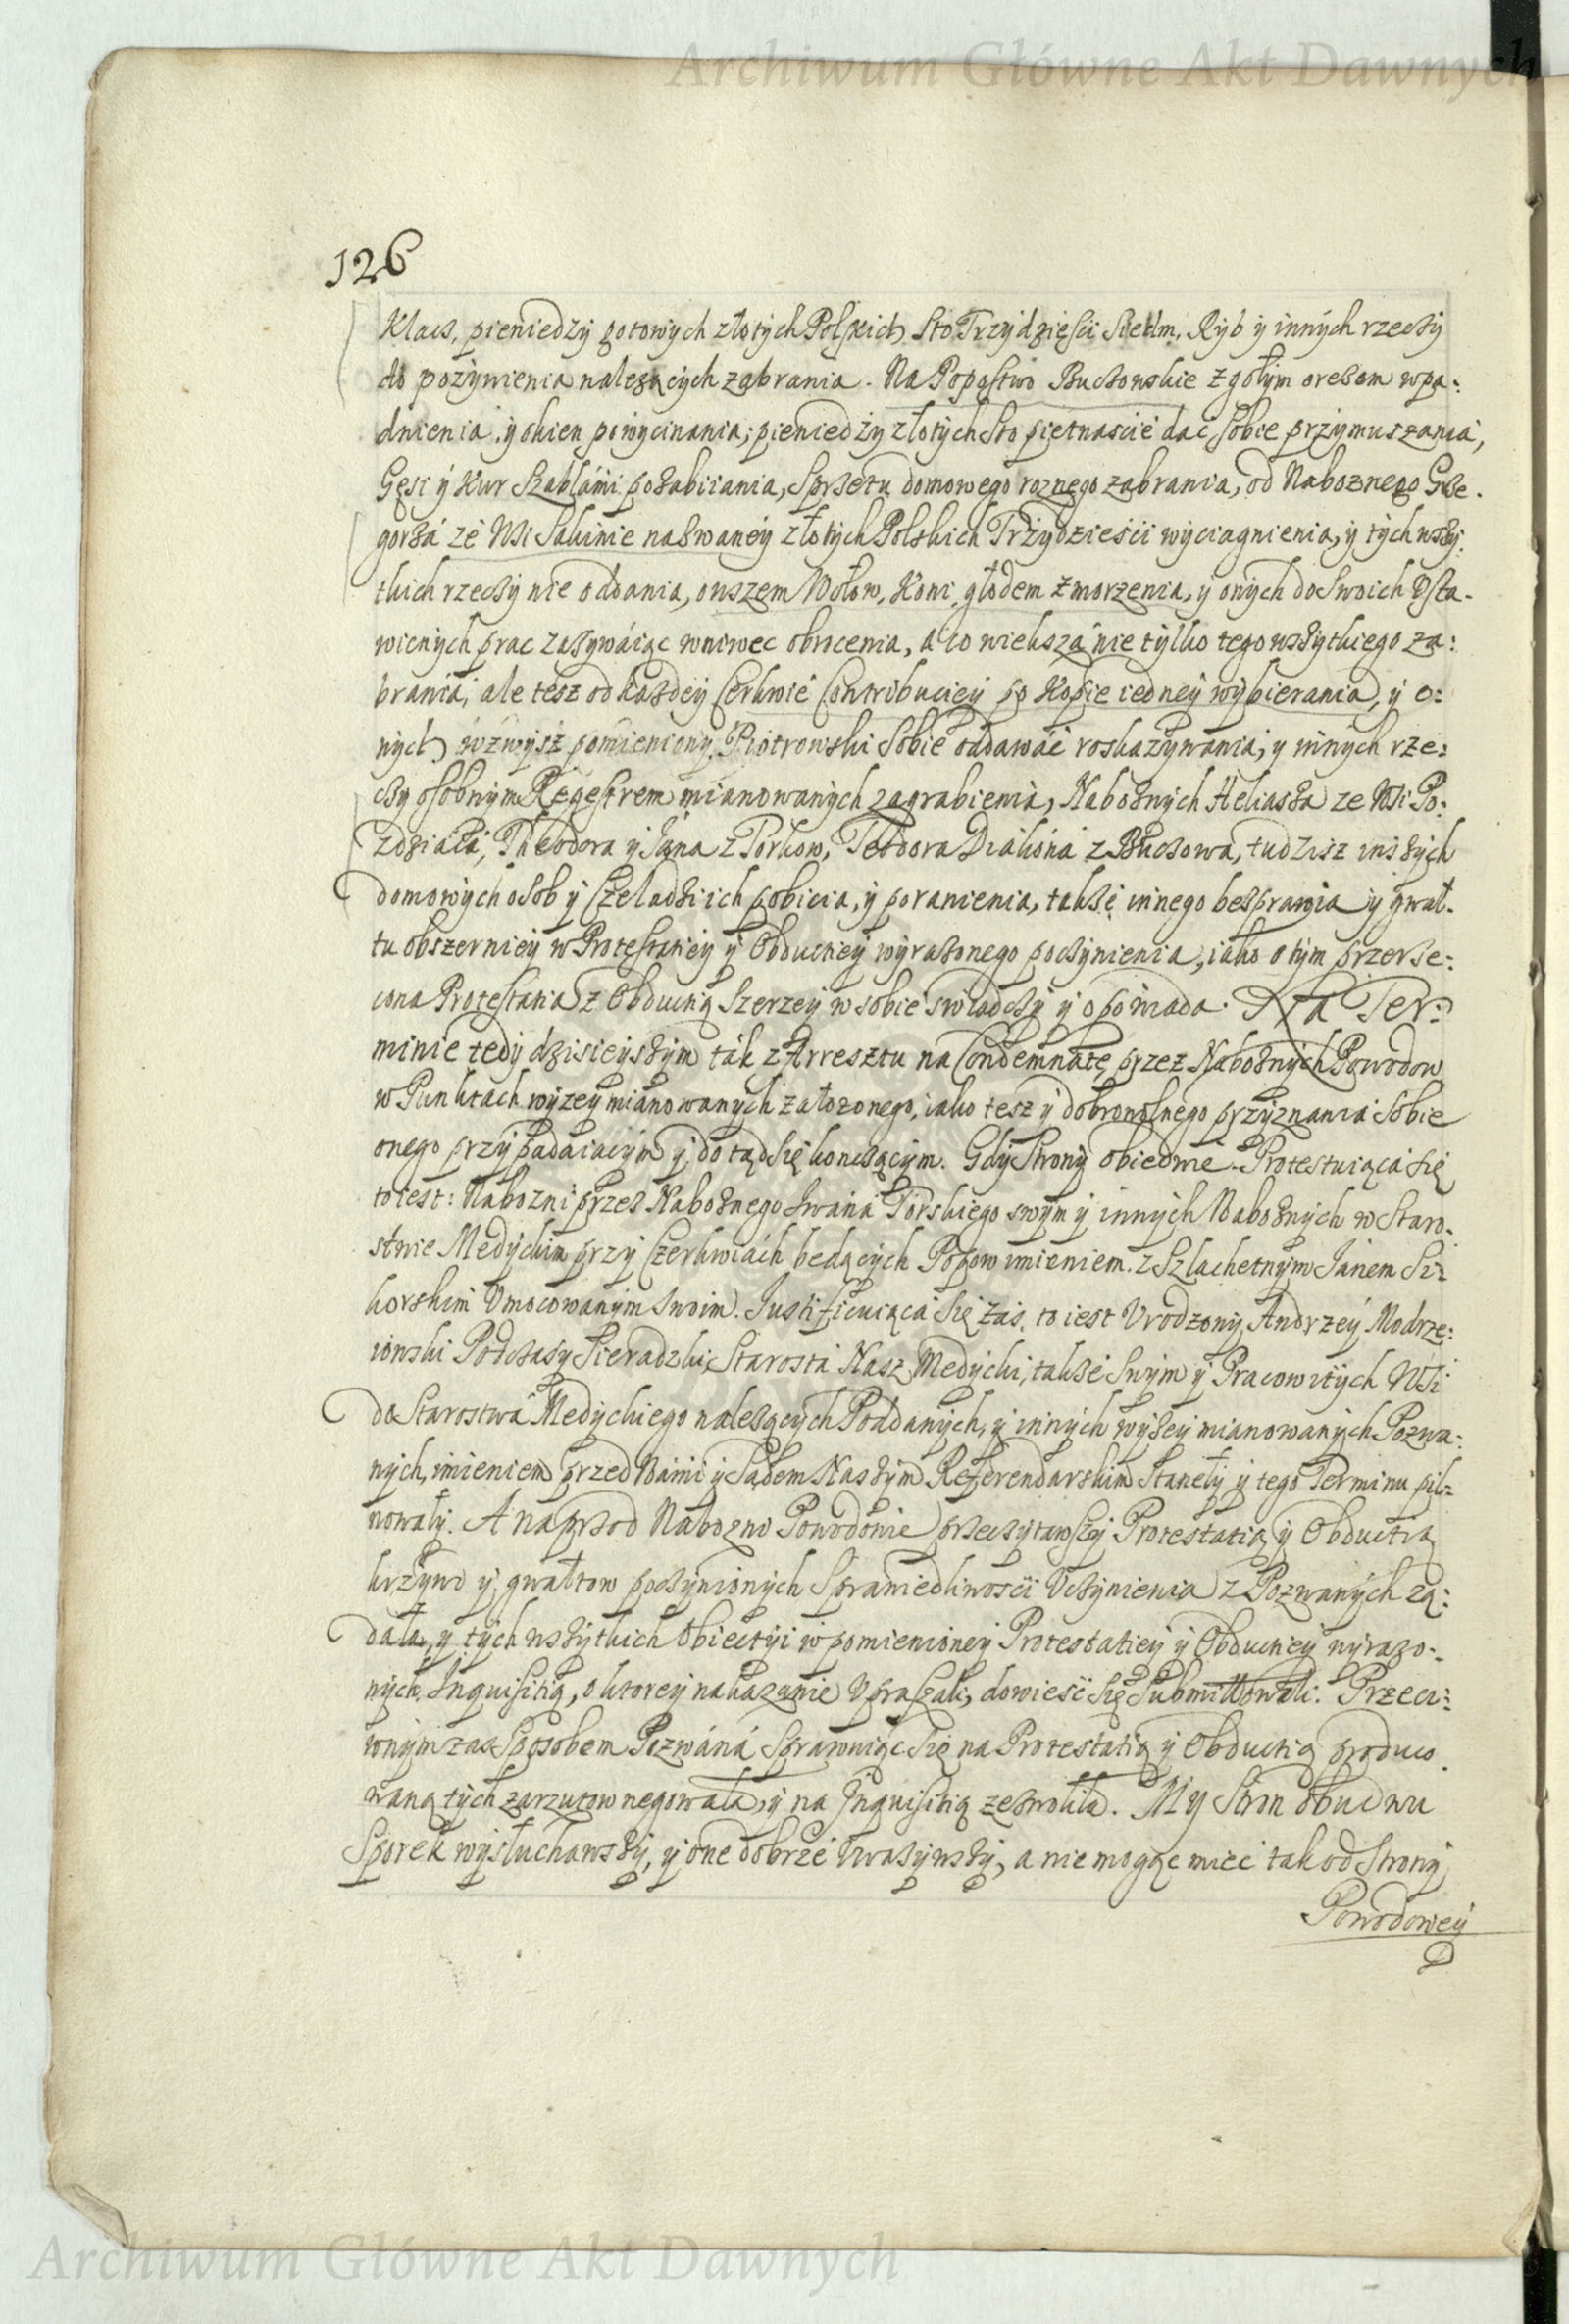 Archiwum Główne Akt Dawnych
126
Klacz, pieniedzy gotowych złotych Polskich Sto Trzydzięści Siedm, Ryb y innych rzeczy
do pozywienia nalezących zabrania. Na Popostwo Buczowskie z gołym orezem wpa:
dnienia, y okien powycinania, pieniedzy złotych Sto piętnascie dać sobie przymuszania,
Gęsi y Kur Szablámi pozabiiania, Sprzetu domowego roznego zabrania, od Naboznego Grze.
gorzá ze Wsi Sakinie nazwaney złotych Polskich Trzydzieści wyciagnienia, y tych wszy.
tkich rzeczy nie oddania, owszem Wołow, Koni, głodem zmorzenia, y onych do Swoich Vsta.
wicnych prac zazywáiąc wniwec obrocenia, a co wieksza nie tylko tego wszytkiego za:
brania, ale tesz od kazdey Cerkwie Contribuciey po Kopie iedney wybierania, y o:
nych wzwysz pomieniony Piotrowski Sobie oddawáć roskazywania, y innych rze:
czy osobnym Regestrem mianowanych zagrabienia, Naboznych Heliasza ze Wsi Po:
zdziaća, Theodora y Jana z Torkow, Teodora Diakoná z Buczowa, tudzisz inszych
domowych osob y Czeladzi ich pobicia, y poranienia, takze innego bezprawia y gwał.
tu obszerniey w Protestatiey y Obductiey wyrazonego poczynienia, iako o tym przerze:
cona Protestatia z Obductią Szerzey w sobie swiadczy y opowiada. Na Ter:
minie tedy dzisieyszym ták z Arresztu na Condemnatę przez Naboznych Powodow
w Punktach wyzey mianowanych załozonego, iako tesz y dobrowolnego przyznania Sobie
onego przypadaiacym y do tąd się konczącym. Gdy Strony obiedwie Protestuiąca się
to iest: Nabozni przez Naboznego Iwana Torskiego swym y innych Naboznych w Staro.
stwie Medyckim przy Czerkwiách bedących Popow imieniem z Szlachetnym Janem Si:
korskim Vmocowanym Swoim. Justificuiąca się zas, to iest Vrodzony Andrzey Modrze:
iowski Podczaszy Sieradzki, Starosta Nasz Medycki, takze Swym y Pracowitych Wsi
do Starostwa Medyckiego nalezących Poddanych, y innych wyzey mianowanych Pozwa:
nych, imieniem przed Námi y Sądem Naszym Referendarskim Stanęły y tego Terminu pil:
nowały. A naprzod Nabozni Powodowie przeczytawszy Protestatią y Obductią
krzywd y gwałtow poczynionych Sprawiedliwości Vczynienia z Pozwanych zą:
dała, y tych wszytkich Obiectyi w pomienioney Protestatiey y Obductiey wyrazo:
nych, Inquisitią, o ktorey nakazanie Vpraszali, dowieść się Submittowali. Przeci:
wnym zas Sposobem Pozwáná Sprawuiąc się na Protestatią y Obductią produco.
waną tych zarzutow negowała, y na Inquisitią zezwoliła. My Stron obudwu
Sporek wysłuchawszy, y one dobrze Vwazywszy, a nie mogąc mieć tak od Strony
Powodowey
Archiwum Główne Akt Dawnych